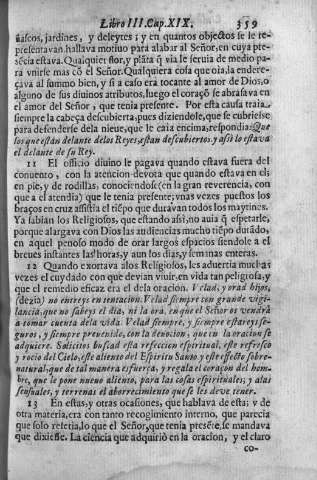 Libro III. Cap. XIX. 359
ñascos, jardines, y deleytes; y en quantos objectos se le re-
presentavan, hallava motivo para alabar al Señor, en cuya pre-
sēcia estava. Qualquier flor, y plāta q̄ via le servia de medio pa-
ra vnirse mas cō el Señor. Qualquiera cosa que oìa, la endere-
çava al sumo bien, y si a caso era tocante al amor de Dios, o
alguno de sus divinos atributos, luego el coraçō se abrasava en
el amor del Señor, que tenia presente. Por esta causa traìa
siempre la cabeça descubierta, pues diziendole, que se cubriesse
para defenderse dela nieue, que le caìa encima, respondia: Que
los que están delante de los Reyes, están descubiertos, y assi lo estava
el delante de su Rey.
11 El officio divino le pagava quando estava fuera del
convento, con la atencion devota que quando estava en el:
en pie, y de rodillas, conociendose (en la gran reverencia, con
que a el atendia) que le tenia presente; vnas vezes puestos los
braços en cruz assistia el tiēpo que duravan todos los maytines.
Ya sabian los Religiosos, que estando assi, no avia q̄ esperarle,
porque alargava con Dios las audiencias mucho tiēpo durādo,
en aquel penoso modo de orar largos espacios siendole a el
breues instantes las horas, y aun los dias, y semanas enteras.
12 Quando exortava alos Religiosos, les aduertia muchas
vezes el cuydado con que devian viuir, en vida tan peligrosa, y
que el remedio eficaz era el dela oracion. Velad, y orad hijos,
(dezia) no entreys en tentacion. Velad siempre con grande vigi-
lancia, que no sabeys el dia, ni la ora, en que el Señor os vendrà
a tomar cuenta dela vida. Velad siempre, y siempre estareys se-
guros, y siempre prevenidos, con la devocion, que en la oracion se
adquiere. Solicitos buscad esta refeccion espiritual, este refresco
y rocio del Cielo, este aliento del Espiritu Santo y este effecto sobre-
natural, que de tal manera esfuerça, y regala el coraçon del hom-
bre, que le pone nueuo aliento, para las cosas espirituales; y alas
sensuales, y terrenas el aborrecimiento que se les deve tener.
13 En estas, y otras ocasiones, que hablava de esta; v de
otra materia, era con tanto recogimiento interno, que parecia
que solo referia, lo que el Señor, que tenia presēte, se mandava
que dixiesse. La ciencia que adquiriò en la oracion, y el claro
co-